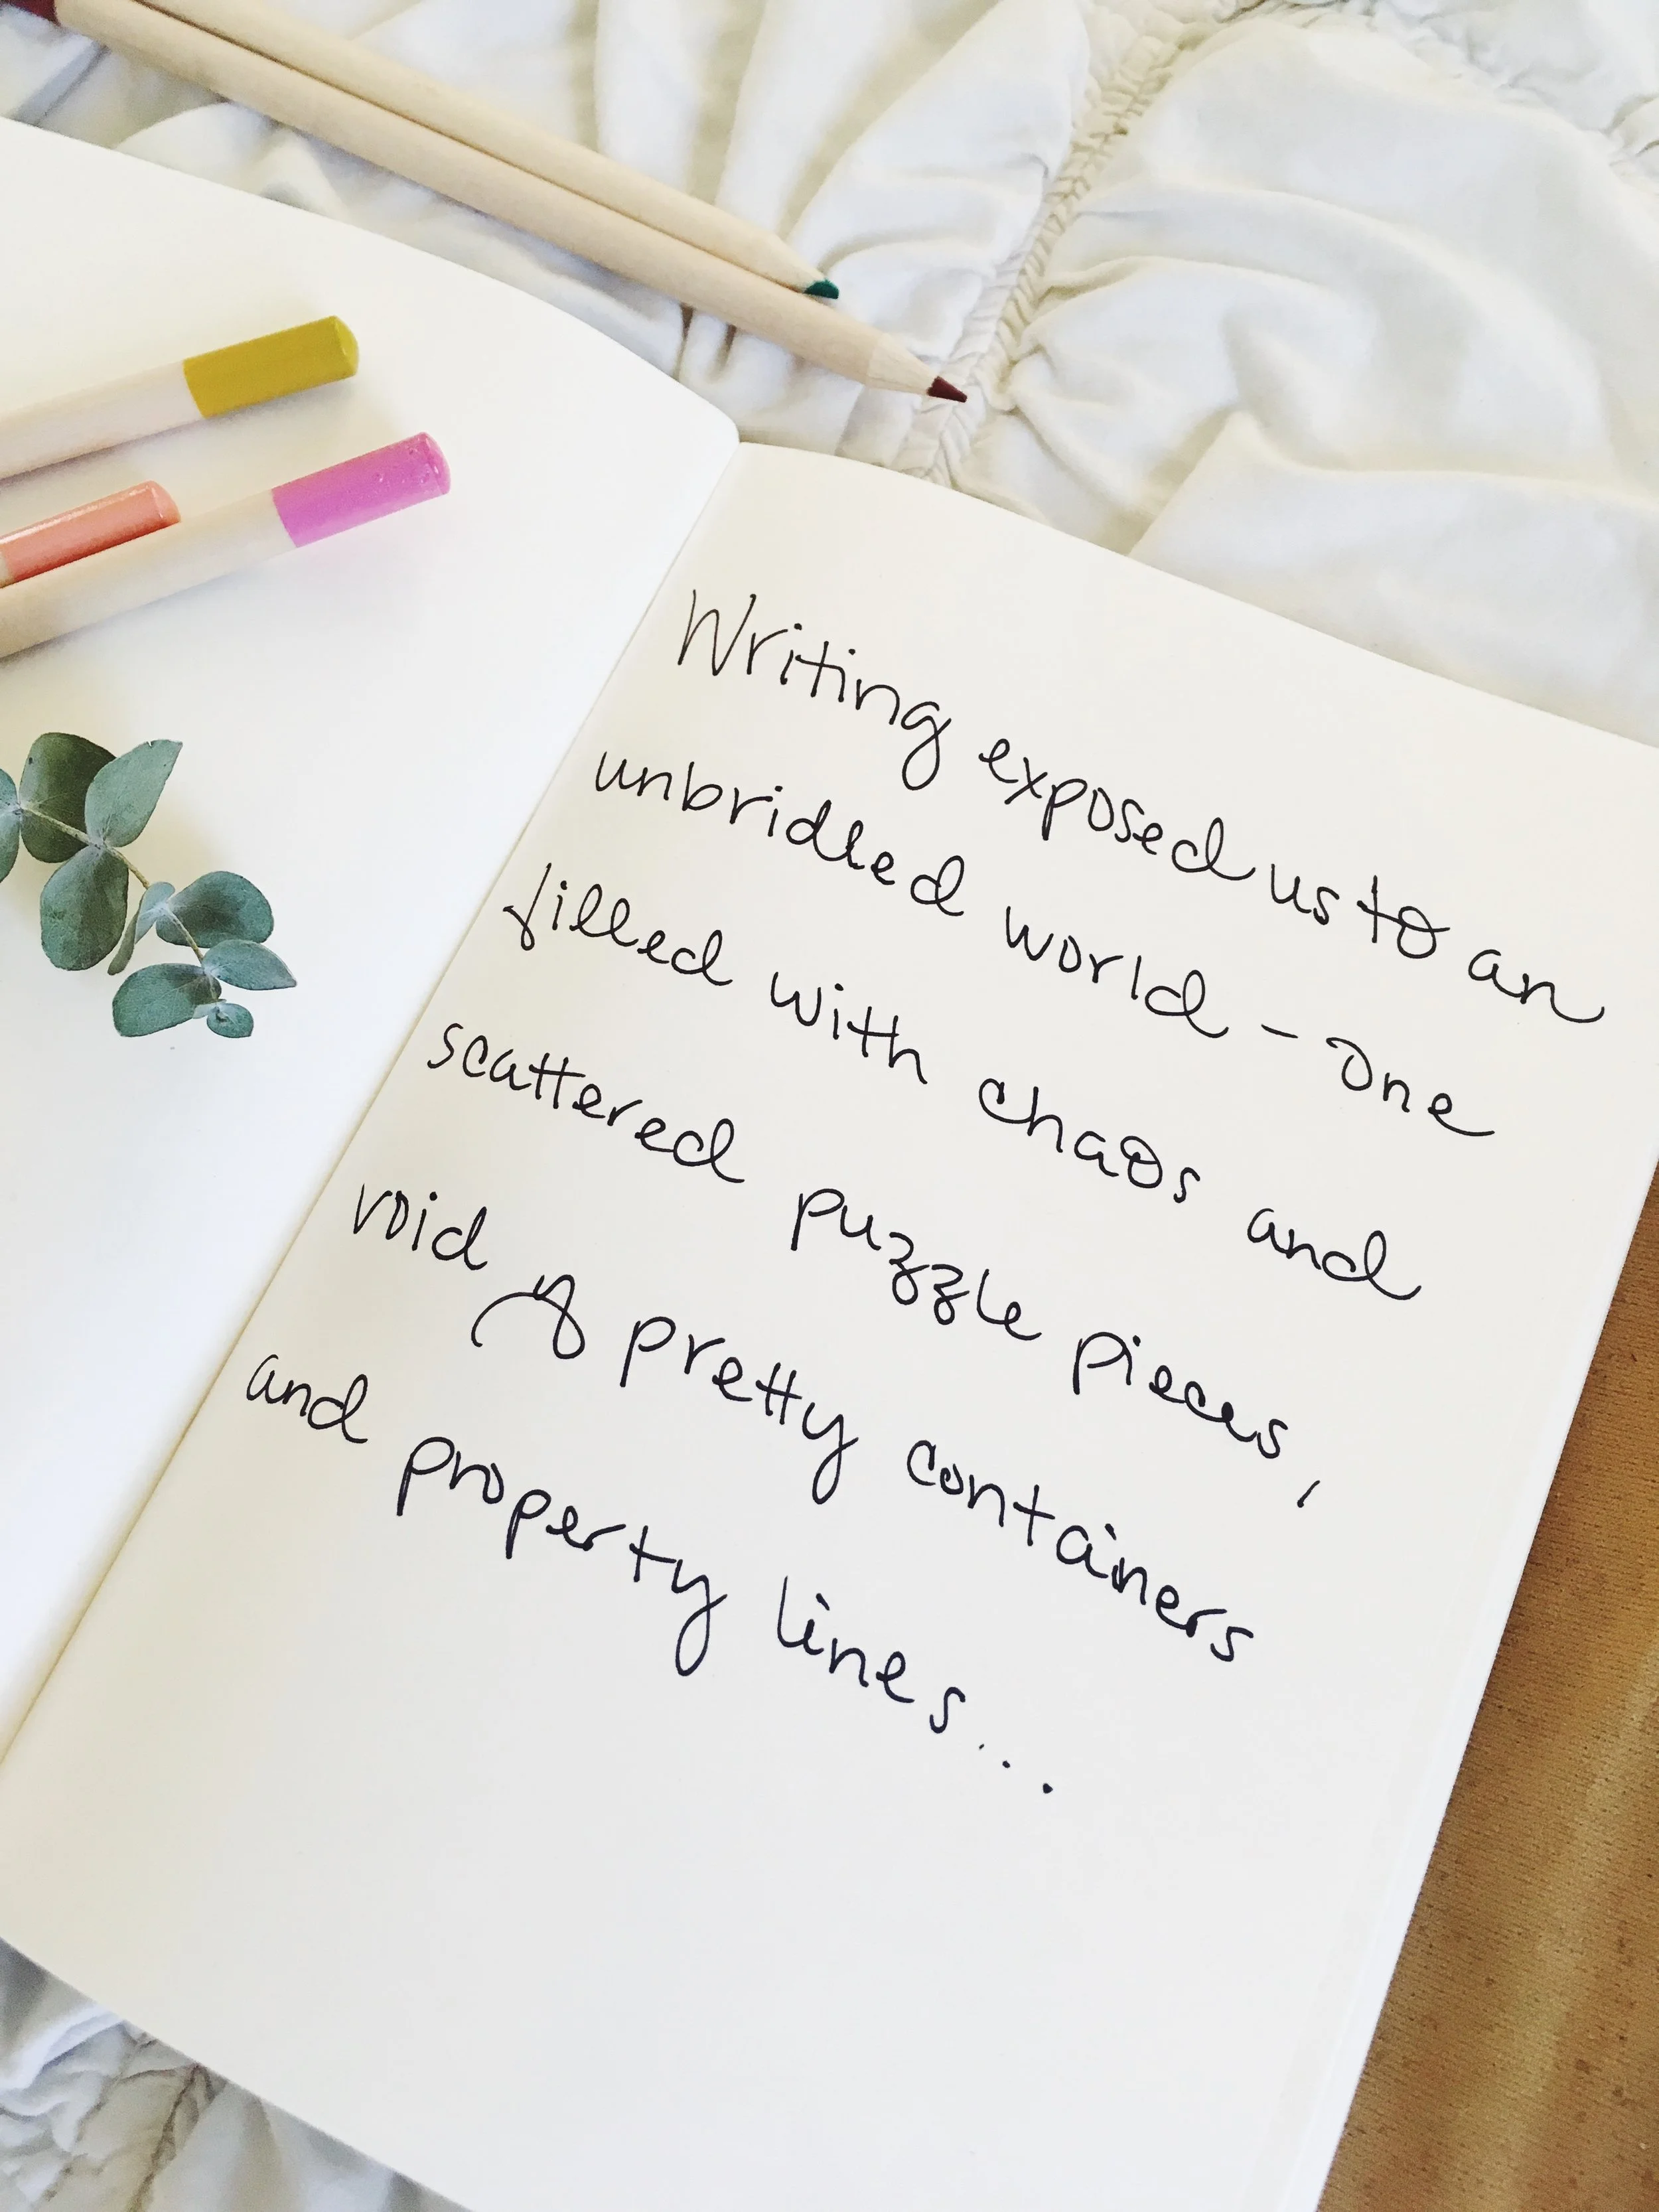 Writing exposed us to an
unbridled world - one
filled with chaos and
scattered puzzle pieces,
void of pretty containers
and property lines...